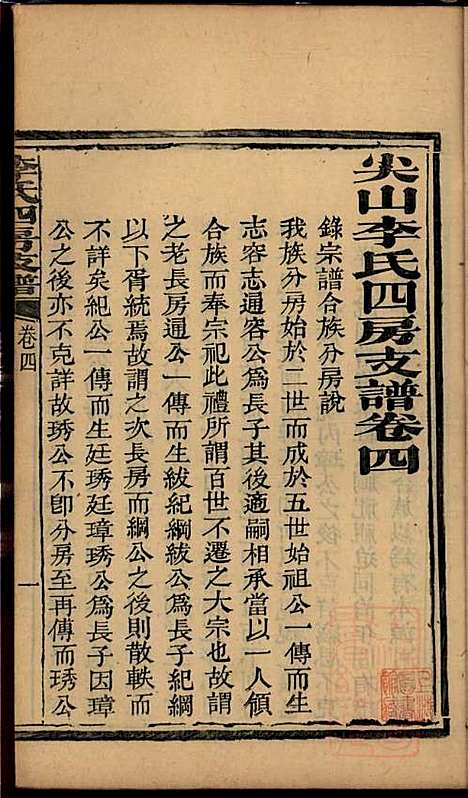 尖山李氏四房支譜卷四
錄宗譜合族分房說
我族分房始於二世而成於五世始祖公一傳而生
志容志通容公為長子其後適嗣相承當以一人領
合族而奉宗祀此禮所謂百世不遷之大宗也故謂
之老長房通公一傳而生紱紀綱紱公為長子紀綱
以下胥統焉故謂之次長房而綱公之後則散軼而
不詳矣紀公一傳而生廷琇廷璋琇公為長子因璋
公之後亦不克詳故琇公不卽分房至再傳而琇公
李氏四房支譜
卷四
一